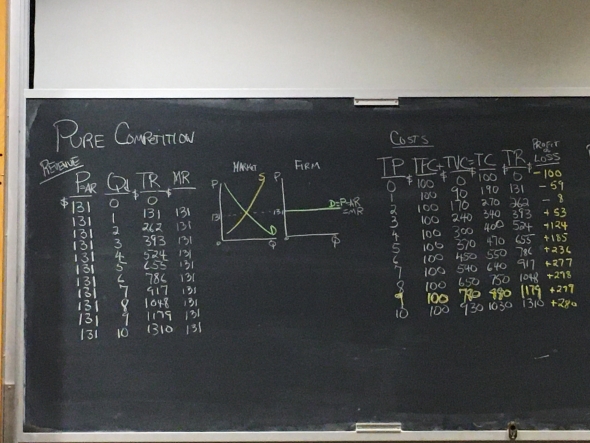 PURE COMPETITION
REVENUE
P=AR Qd TR MR
$ $
131 0 0
131 1 131 131
131 2 262 131
131 3 393 131
131 4 524 131
131 5 655 131
131 6 786 131
131 7 917 131
131 8 1048 131
131 9 1179 131
131 10 1310 131
MARKET
P S
131
D
Q
FIRM
P
131 D=P=AR
=MR
Q
COSTS
PROFIT
LOSS
TP TFC+ TVC= TC TR
0 100 0 100 0 -100
1 100 90 190 131 -59
2 100 170 270 262 -8
3 100 240 340 393 +53
4 100 300 400 524 +124
5 100 370 470 655 +185
6 100 450 550 786 +236
7 100 540 640 917 +277
8 100 650 750 1048 +298
9 100 780 880 1179 +299
10 100 930 1030 1310 +280